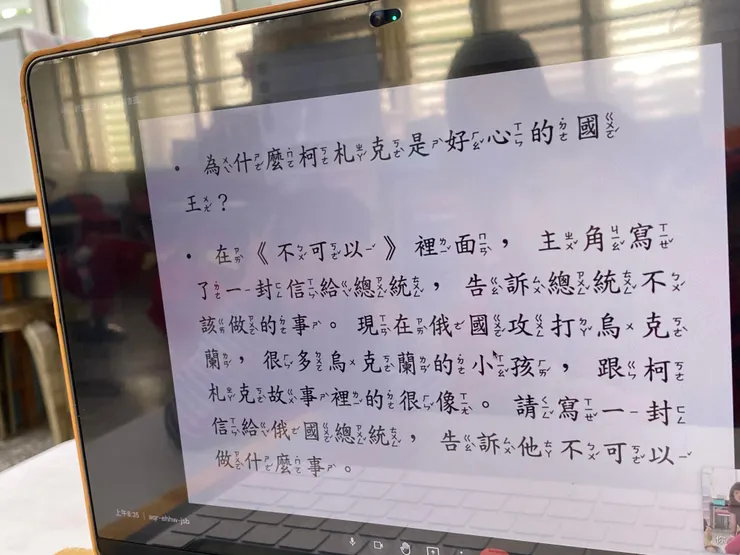 • 為什麼柯札克是好心的國
王？
• 在《不可以》裡面，主角寫
了一封信給總統，告訴總統不
該做的事。現在俄國攻打烏克
蘭，很多烏克蘭的小孩，跟柯
札克故事裡的很像。請寫一封
信給俄國總統，告訴他不可以
做什麼事。
上午8:35 | aqr-ehhw-jsb